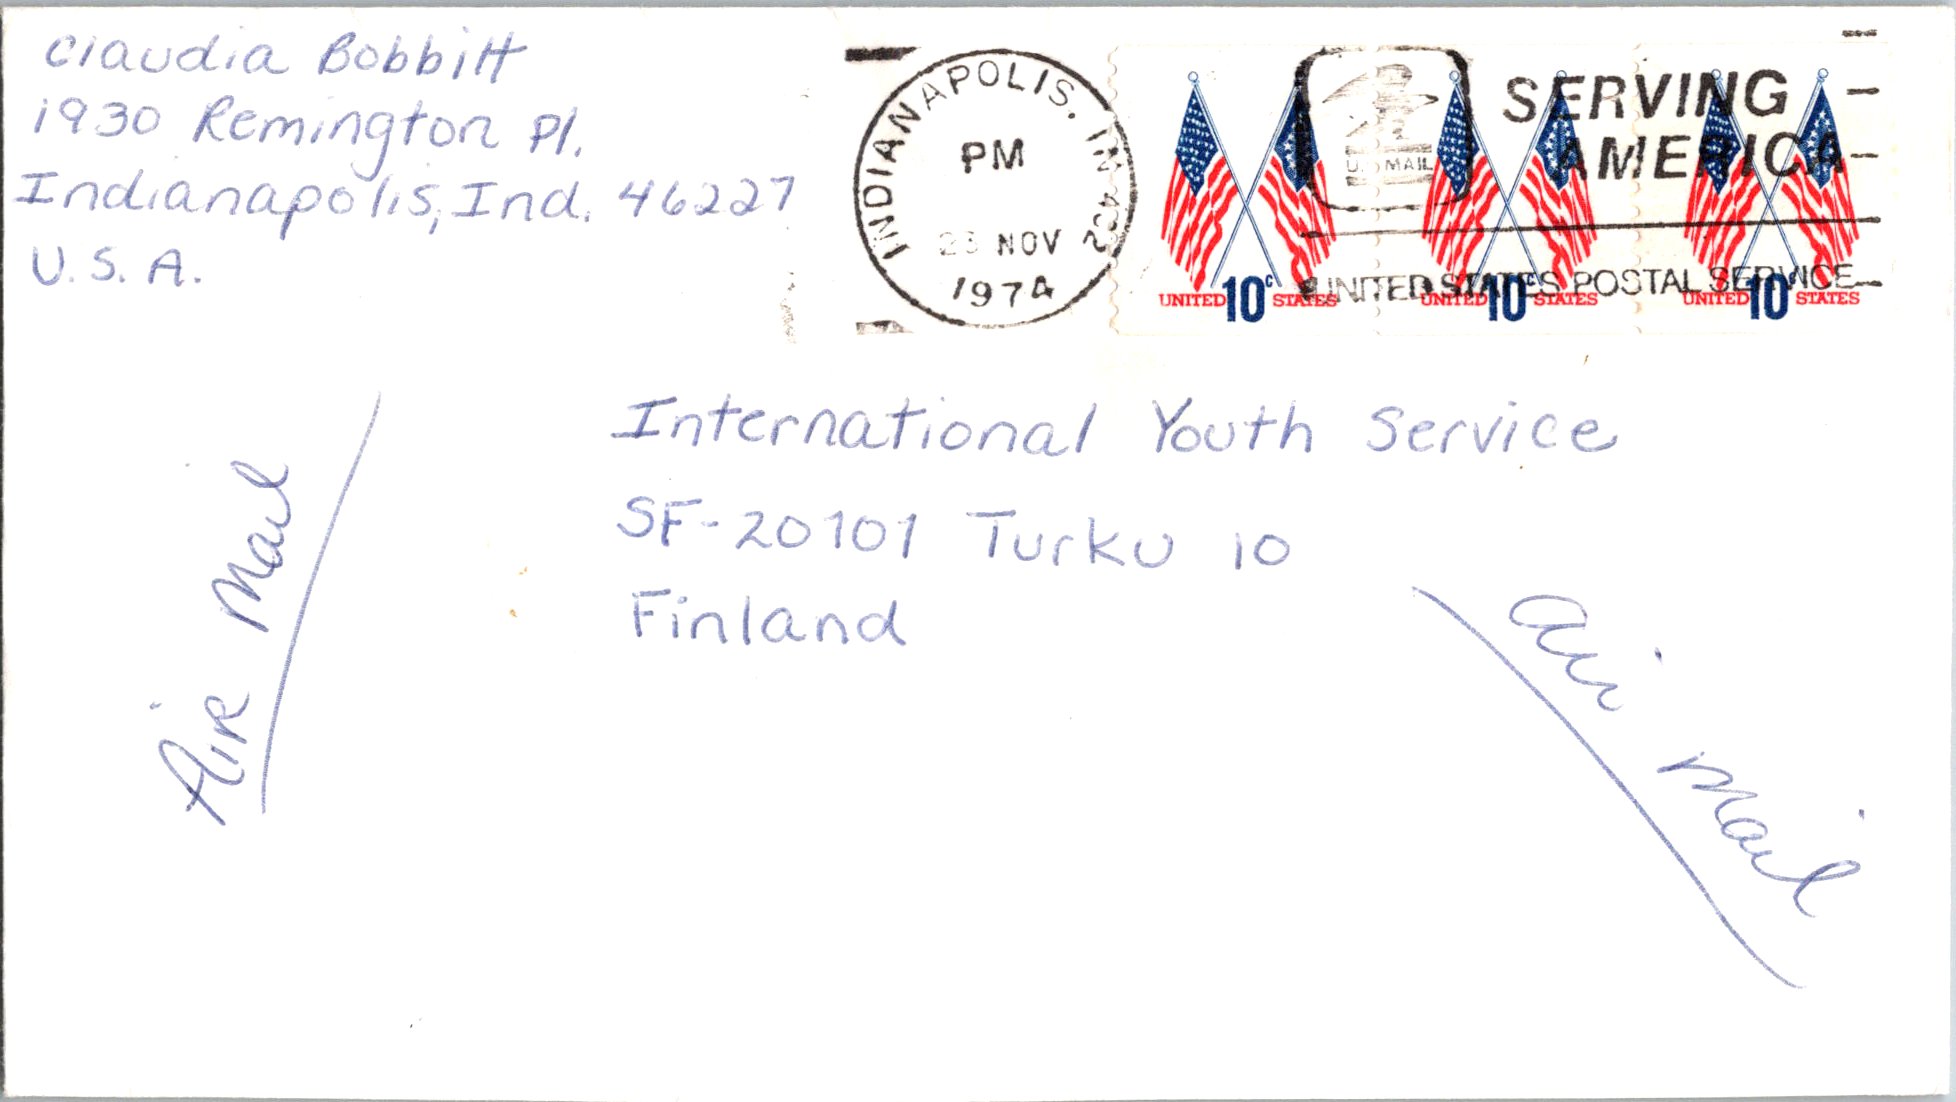 Claudia Bobbitt
1930 Remington Pl.
Indianapolis, Ind. 46227
U.S.A.
INDIANAPOLIS, IN
PM
NOV
1974
U.S. MAIL
SERVING
AMERICA
UNITED STATES POSTAL SERVICE
UNITED 10c STATES
UNITED 10c STATES
UNITED 10c STATES
International Youth Service
SF-20101 Turku 10
Finland
Air Mail
Air Mail